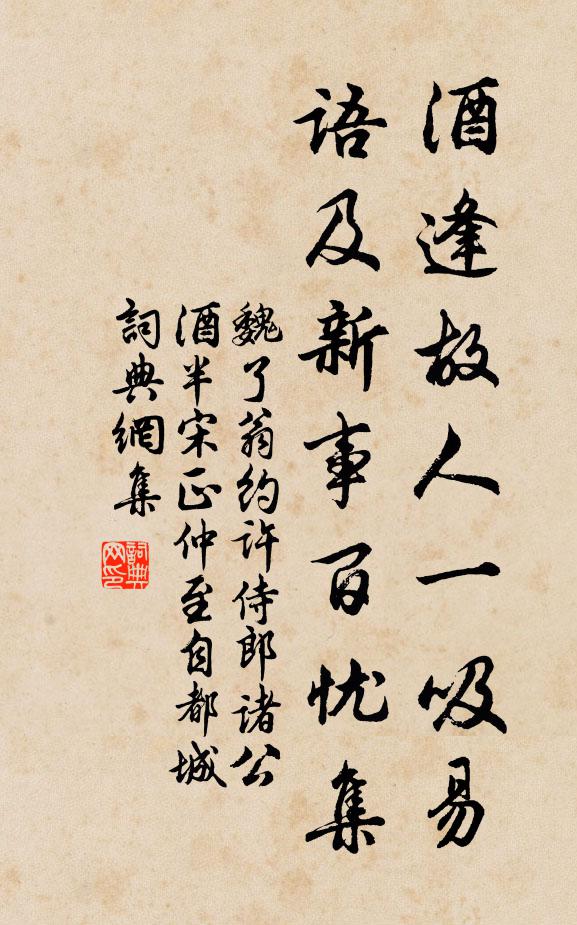 酒逢故人一吸易
語及新事百忧集
魏了翁約許侍郎諸公
酒半宋正仲至自都城
詞典網集
詞典
网印